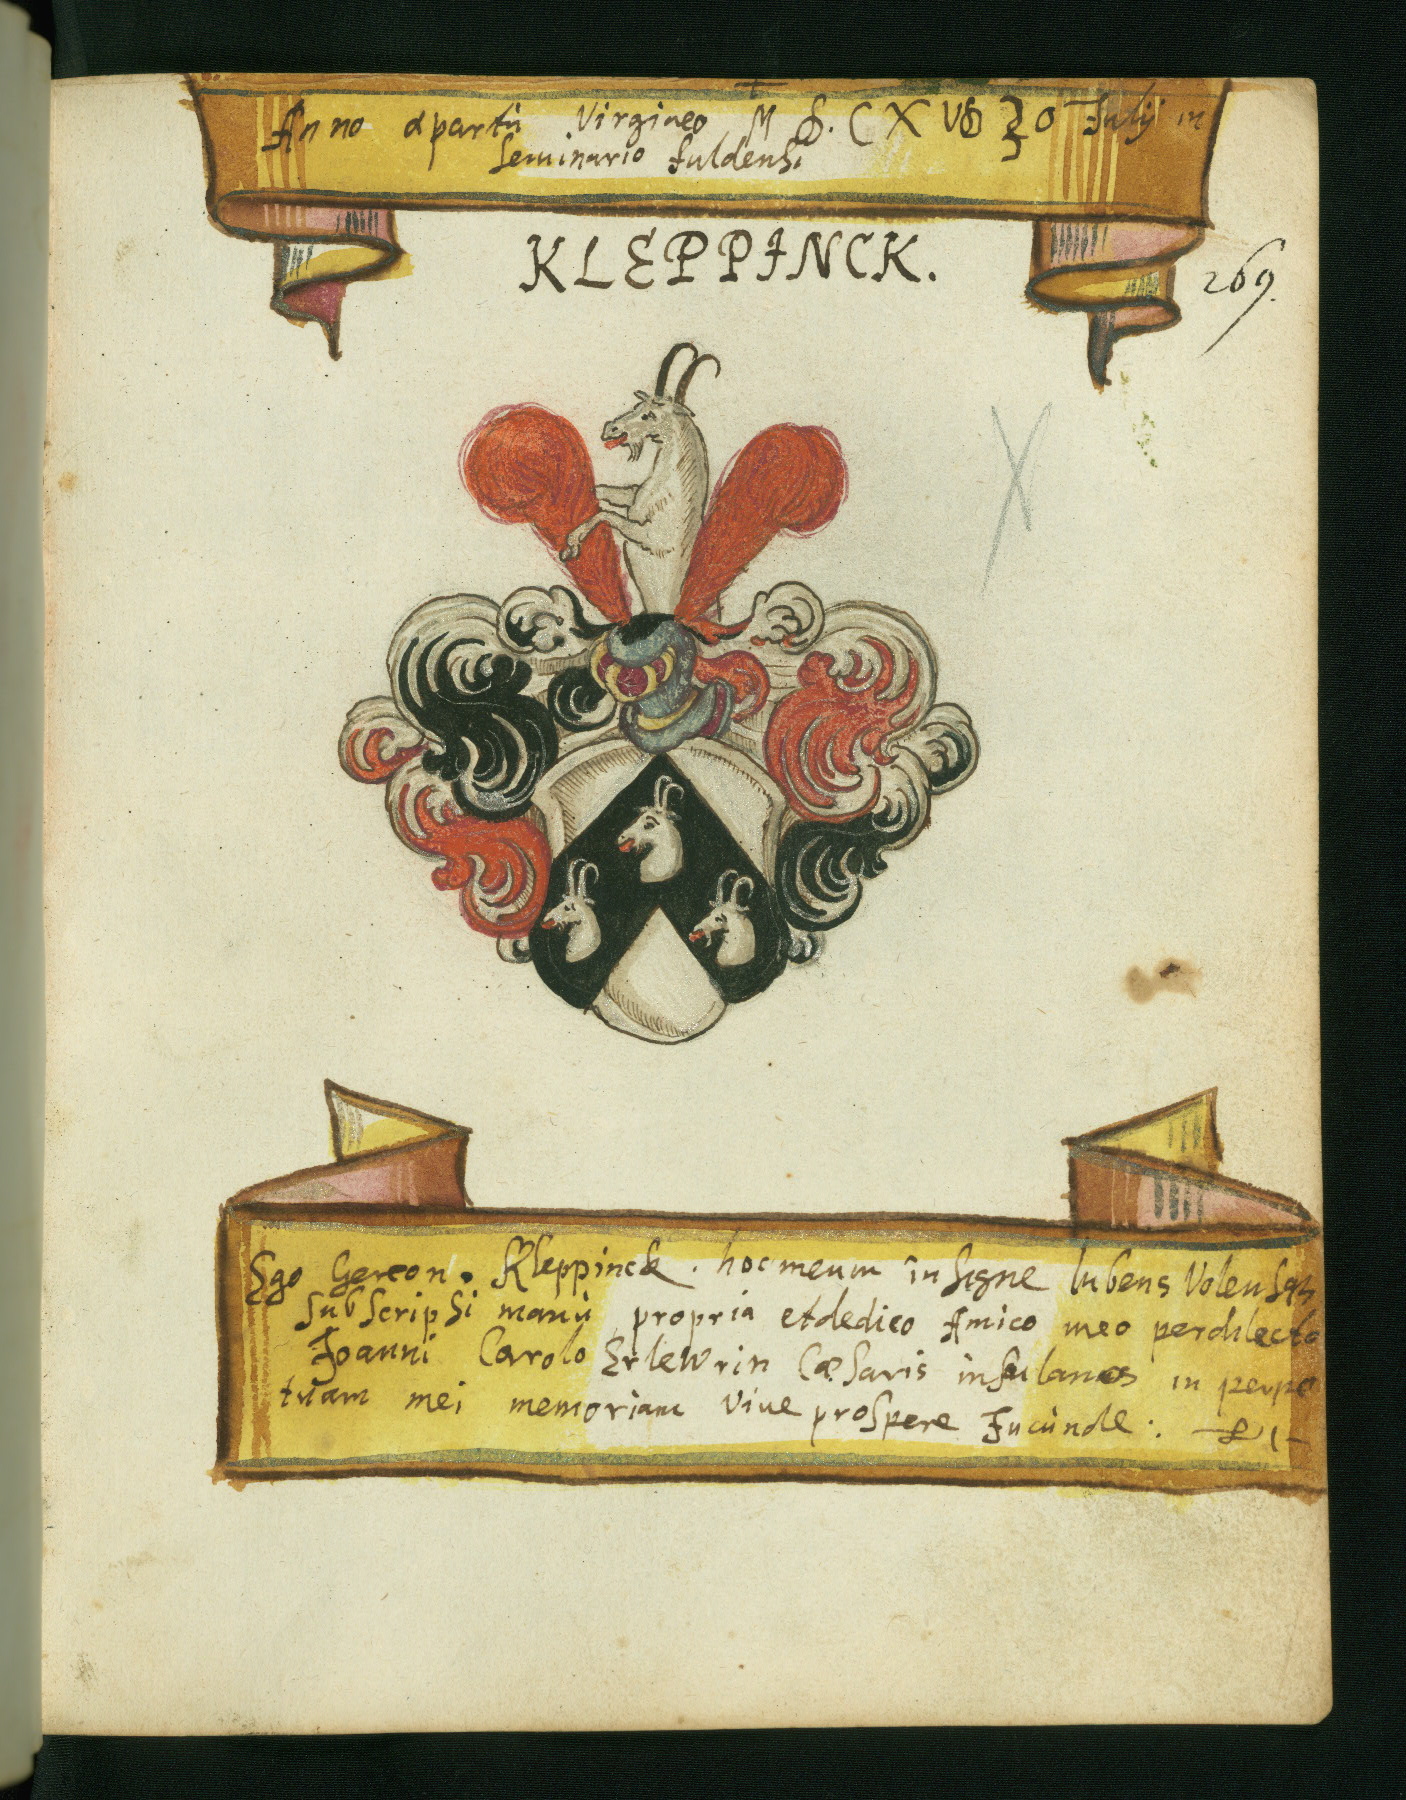 Anno a partu Virgineo M D. C X V 30 Julij in
Seminario fuldensi
KLEPPINCK.
269.
Ego Gereon. Kleppinck. hoc meum insigne lubens Volensq3
subscripsi manu propria et dedico Amico meo perdilecto
Joanni Carolo Erlewein Cæsaris insulanus in perpe
tuam mei memoriam Viue prospere Jucunde: